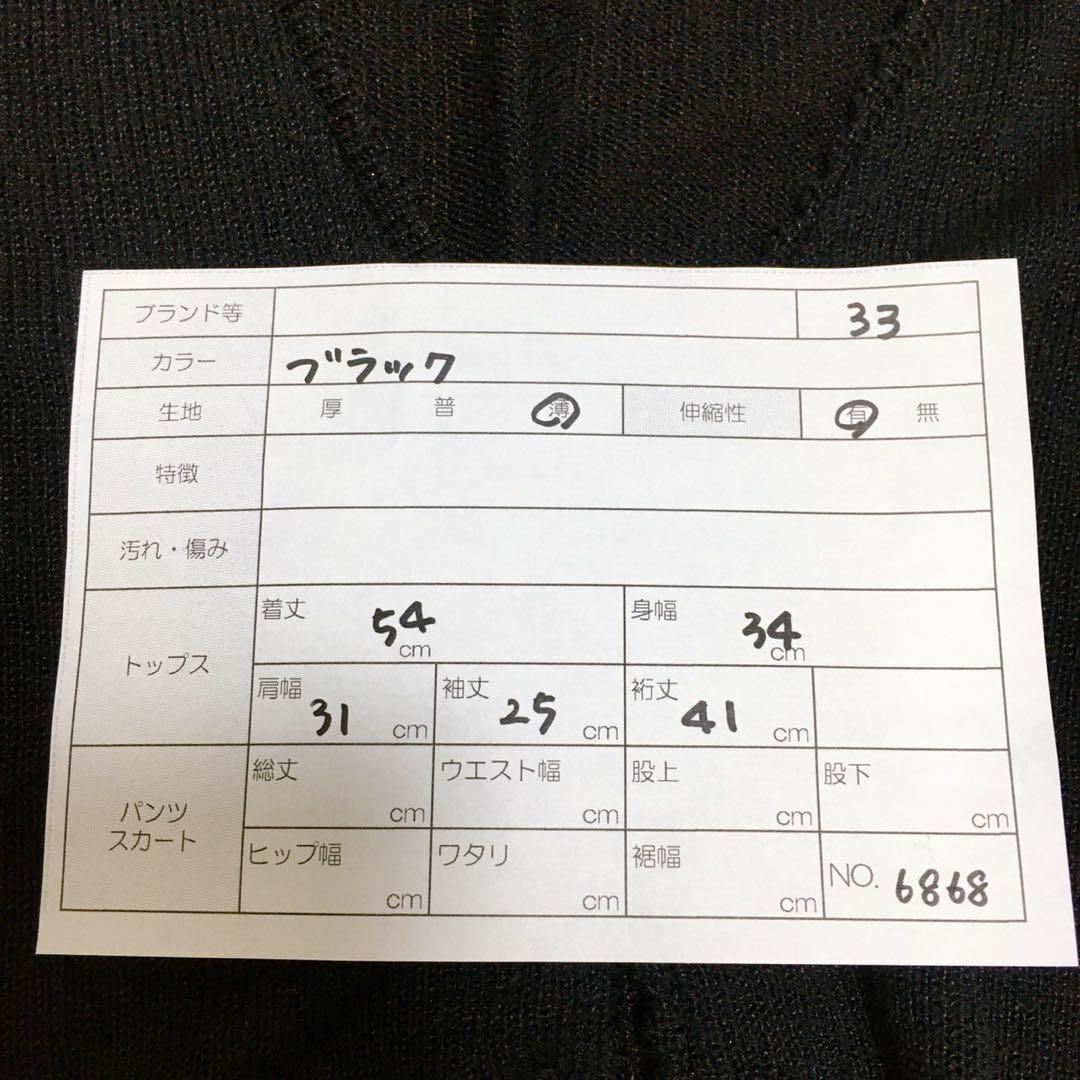 ブランド等 33
カラー ブラック
生地 厚 普 薄 伸縮性 有 無
特徴
汚れ・傷み
トップス 着丈 54 cm 身幅 34 cm
肩幅 31 cm 袖丈 25 cm 裄丈 41 cm
パンツ スカート 総丈 cm ウエスト幅 cm 股上 cm 股下 cm
ヒップ幅 cm ワタリ cm 裾幅 cm NO. 6868